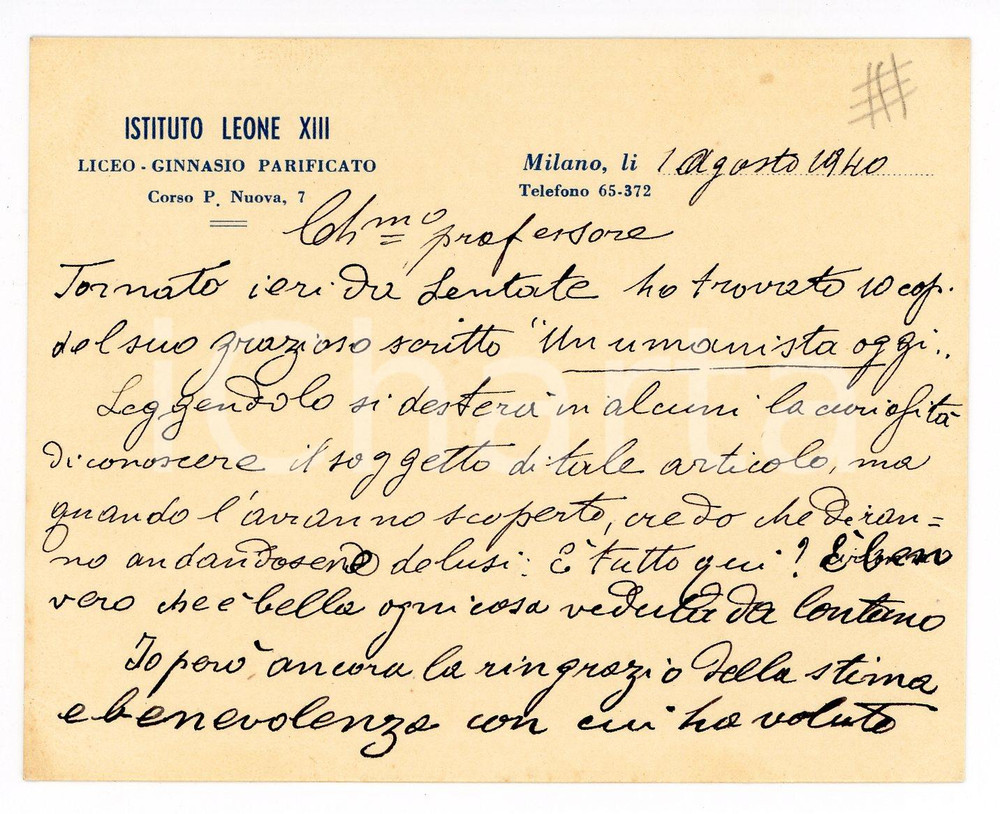 ISTITUTO LEONE XIII
LICEO - GINNASIO PARIFICATO
Corso P. Nuova, 7
Milano, li 1 Agosto 1940
Telefono 65-372
Ch.mo professore
Tornato ieri da Lentate ho trovato 10 cop.
del suo grazioso scritto "Un umanista oggi„.
Leggendolo si desterà in alcuni la curiosità
di conoscere il soggetto di tale articolo, ma
quando l'avranno scoperto, credo che diran=
no andandosene delusi: È tutto qui? È ben
vero che è bella ogni cosa veduta da lontano
Io però ancora la ringrazio della stima
e benevolenza con cui ha voluto
iCharta